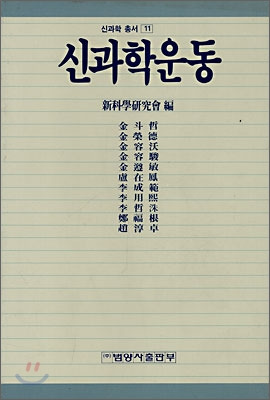 신과학 총서 11
신과학운동
新科學硏究會 編
金斗哲
金榮德
金容沃
金容駿
金遵敏
盧在鳳
李成範
李用熙
李哲洙
鄭福根
趙淳卓
(주) 범양사출판부